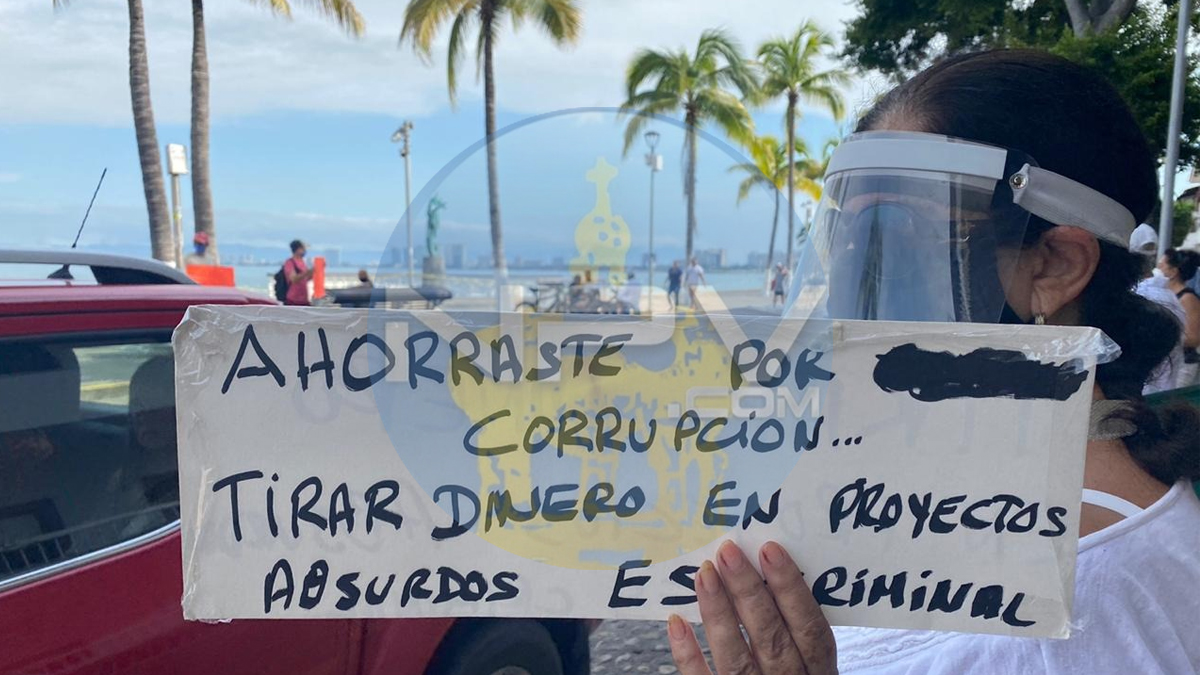 AHORRASTE POR
CORRUPCION...
TIRAR DINERO EN PROYECTOS
ABSURDOS ES CRIMINAL
NPV
.COM